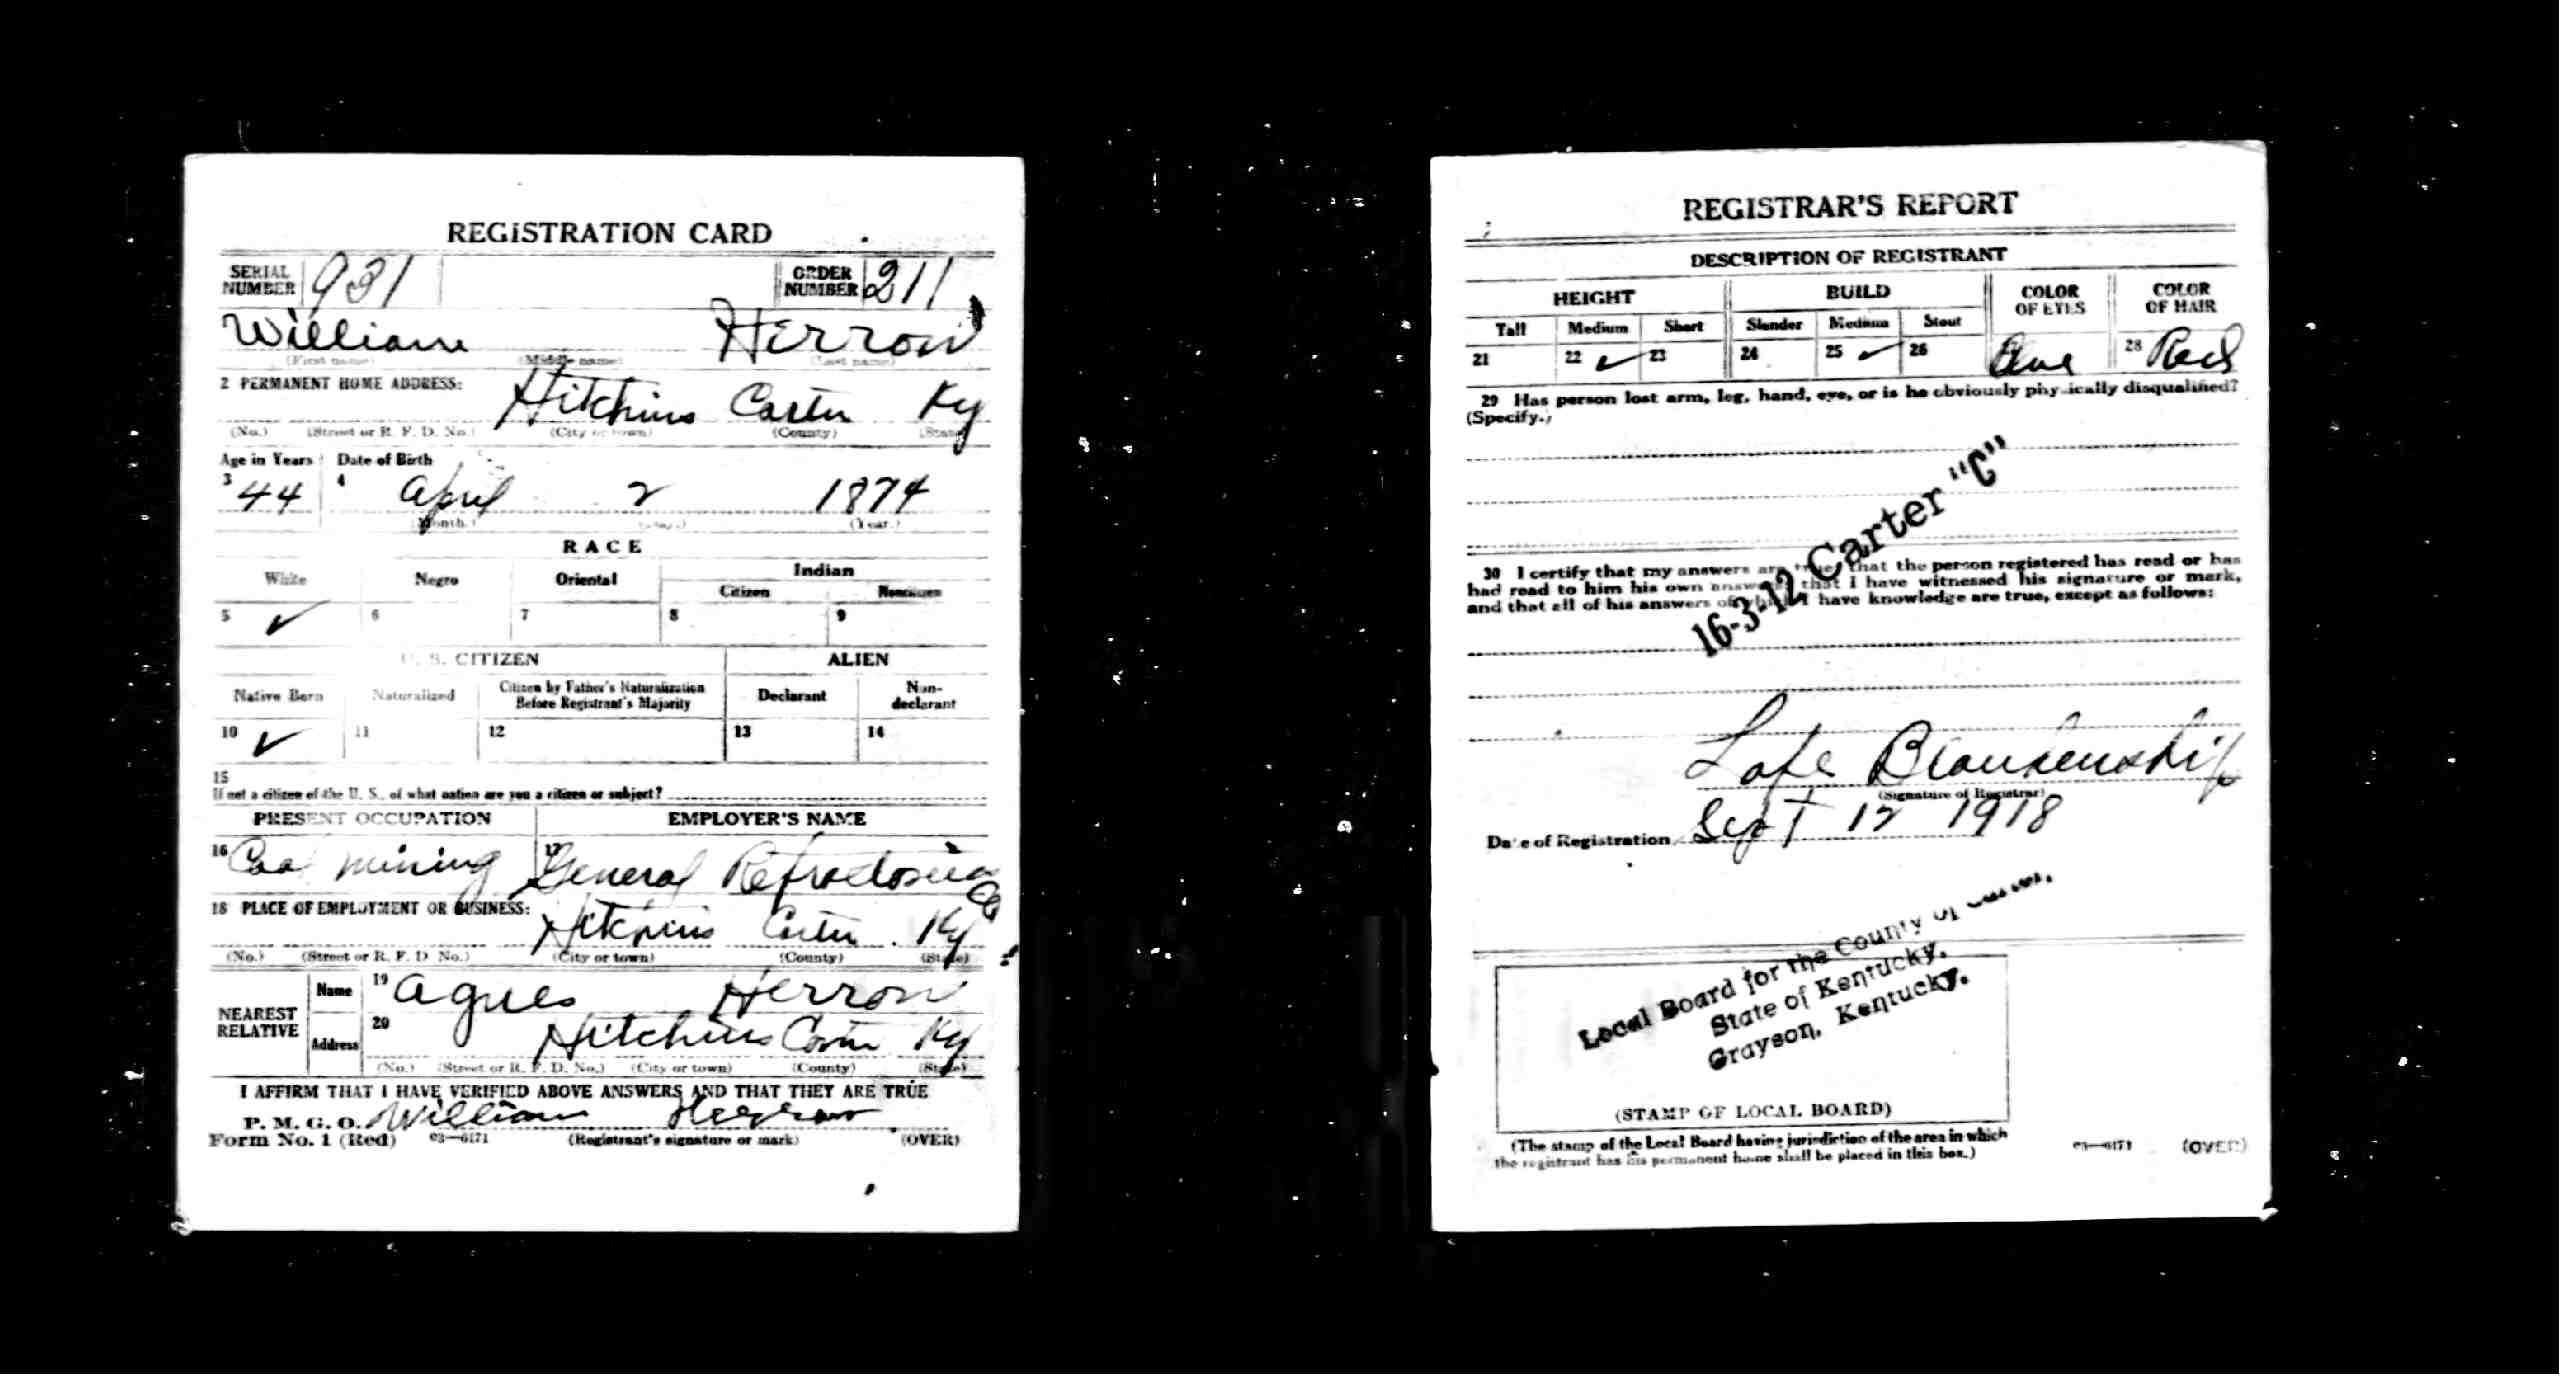 REGISTRATION CARD
SERIAL NUMBER 931 ORDER NUMBER 211
William Herron
(First name) (Middle name) (Last name)
2 PERMANENT HOME ADDRESS:
Hitchins Carter Ky
(No.) (Street or R. F. D. No.) (City or town) (County) (State)
Age in Years Date of Birth
3 44 4 April 2 1874
(Month.) (Day.) (Year.)
RACE
White Negro Oriental Indian
Citizen Noncitizen
5 ✓ 6 7 8 9
U. S. CITIZEN ALIEN
Native Born Naturalized Citizen by Father's Naturalization Before Registrant's Majority Declarant Non-declarant
10 ✓ 11 12 13 14
15
If not a citizen of the U. S., of what nation are you a citizen or subject?
PRESENT OCCUPATION EMPLOYER'S NAME
16 Coal Mining 17 General Refractories Co
18 PLACE OF EMPLOYMENT OR BUSINESS:
Hitchins Carter Ky
(No.) (Street or R. F. D. No.) (City or town) (County) (State)
NEAREST RELATIVE
Name 19 Agnes Herron
Address 20 Hitchins Carter Ky
(No.) (Street or R. F. D. No.) (City or town) (County) (State)
I AFFIRM THAT I HAVE VERIFIED ABOVE ANSWERS AND THAT THEY ARE TRUE
P. M. G. O. William Herron
Form No. 1 (Red) 03—6171 (Registrant's signature or mark) (OVER)
REGISTRAR'S REPORT
DESCRIPTION OF REGISTRANT
HEIGHT BUILD COLOR OF EYES COLOR OF HAIR
Tall Medium Short Slender Medium Stout
21 22 ✓ 23 24 25 ✓ 26 28 Red
29 Has person lost arm, leg, hand, eye, or is he obviously physically disqualified?
(Specify.)
16-3-12 Carter "C"
30 I certify that my answers are true; that the person registered has read or has
had read to him his own answers; that I have witnessed his signature or mark,
and that all of his answers of which I have knowledge are true, except as follows:
Lafe Blankenship
(Signature of Registrar)
Date of Registration Sept 12 1918
Local Board for the County of Carter,
State of Kentucky.
Grayson, Kentucky.
(STAMP OF LOCAL BOARD)
(The stamp of the Local Board having jurisdiction of the area in which
the registrant has his permanent home shall be placed in this box.)
03—6171 (OVER)